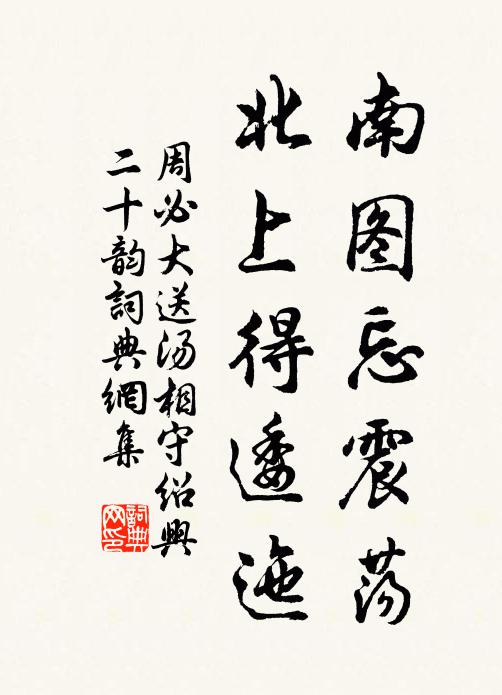 南图忘震荡
北上得逶迤
周必大送汤相守绍興
二十韵詞典網集
詞典网印